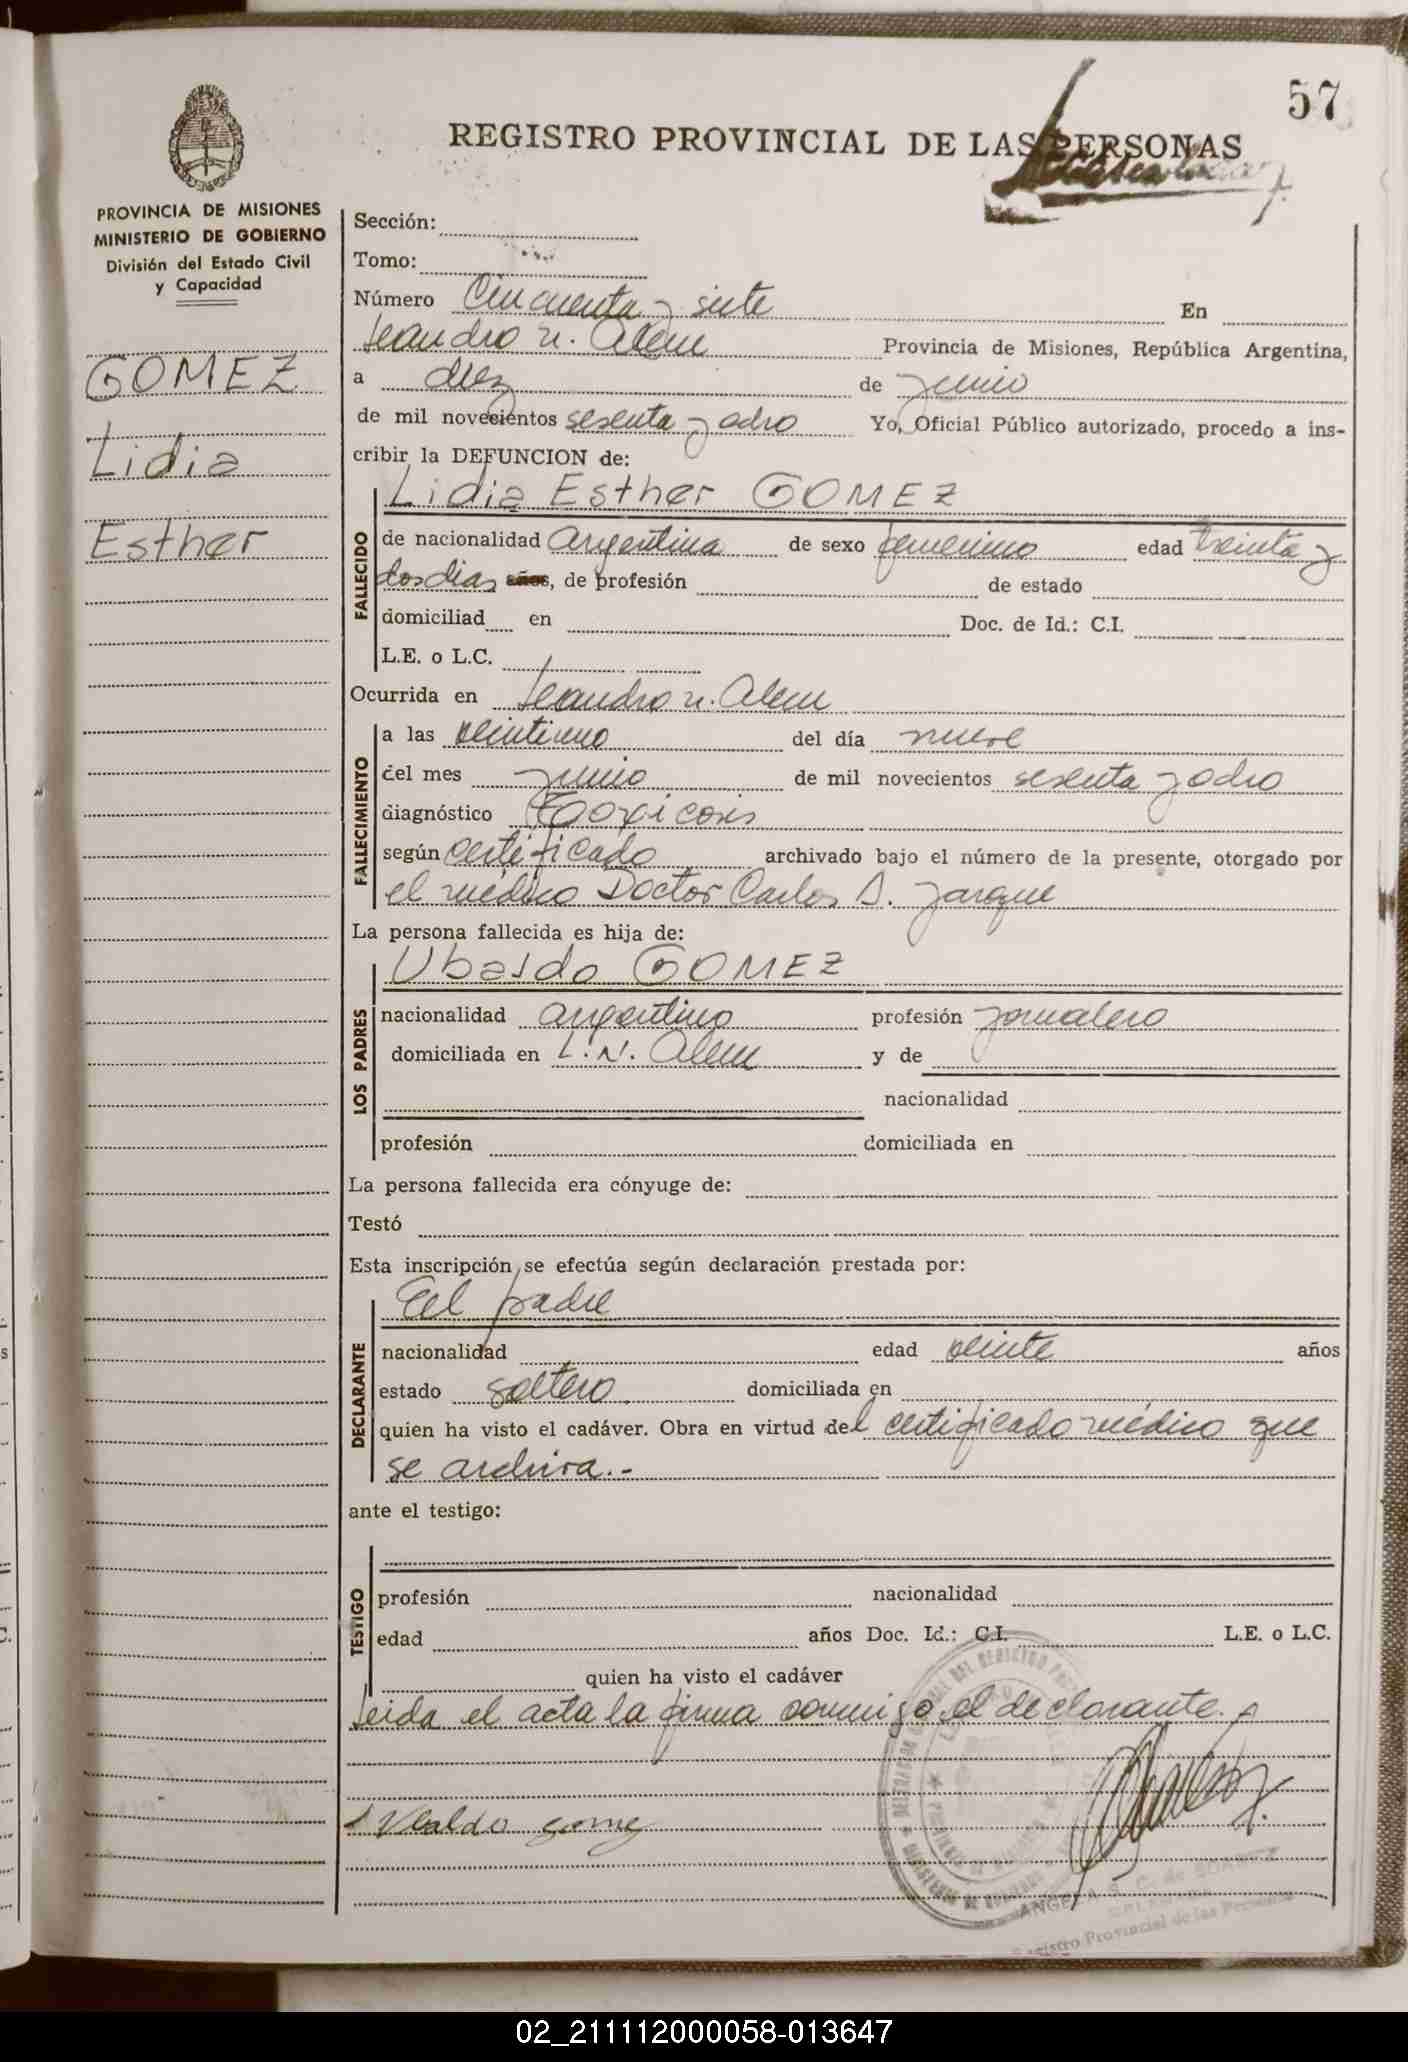 57
REGISTRO PROVINCIAL DE LAS PERSONAS
PROVINCIA DE MISIONES
MINISTERIO DE GOBIERNO
División del Estado Civil
y Capacidad
GOMEZ
Lidia
Esther
Sección:
Tomo:
Número Cincuenta y siete En
Leandro N. Alem Provincia de Misiones, República Argentina,
a diez de junio
de mil novecientos sesenta y ocho Yo, Oficial Público autorizado, procedo a ins-
cribir la DEFUNCION de:
Lidia Esther GOMEZ
FALLECIDO
de nacionalidad Argentina de sexo femenino edad treinta y
dos dias años, de profesión de estado
domiciliad en Doc. de Id.: C.I.
L.E. o L.C.
Ocurrida en Leandro N. Alem
FALLECIMIENTO
a las veintiuno del día nueve
del mes junio de mil novecientos sesenta y ocho
diagnóstico Toxicosis
según certificado archivado bajo el número de la presente, otorgado por
el médico Doctor Carlos D. Jarque
La persona fallecida es hija de:
LOS PADRES
Ubaldo GOMEZ
nacionalidad argentino profesión jornalero
domiciliada en L. N. Alem y de
nacionalidad
profesión domiciliada en
La persona fallecida era cónyuge de:
Testó
Esta inscripción se efectúa según declaración prestada por:
DECLARANTE
El padre
nacionalidad edad veinte años
estado soltero domiciliada en
quien ha visto el cadáver. Obra en virtud del certificado médico que
se archiva.-
ante el testigo:
TESTIGO
profesión nacionalidad
edad años Doc. Id.: C.I. L.E. o L.C.
quien ha visto el cadáver
Leida el acta la firma conmigo el declarante.
Ubaldo Gomez
Registro Provincial de las Personas
02_211112000058-013647